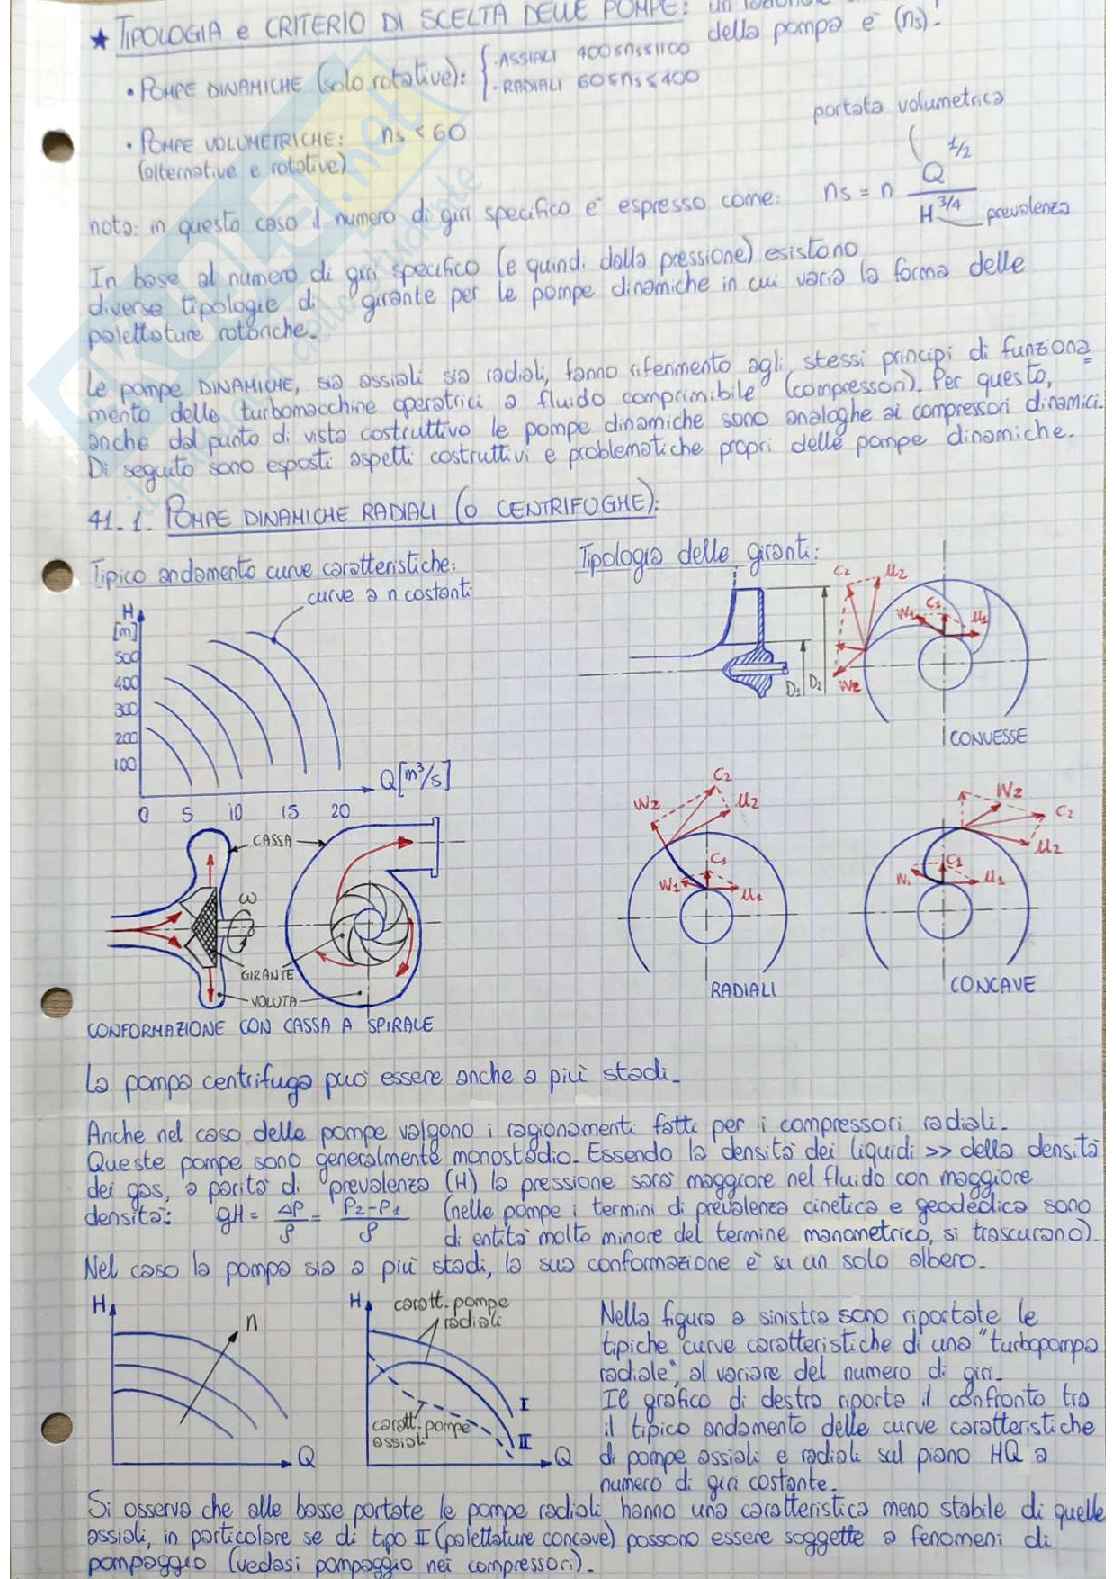 ★ TIPOLOGIA e CRITERIO DI SCELTA DELLE POMPE: un
della pompa è (ns).
• POMPE DINAMICHE (solo rotative): { -ASSIALI 400≤ns≤1100
-RADIALI 60≤ns≤400
• POMPE VOLUMETRICHE: ns < 60
(alternative e rotative)
portata volumetrica
nota: in questo caso il numero di giri specifico è espresso come: ns = n Q^1/2 / H^3/4 prevalenza
In base al numero di giri specifico (e quindi dalla pressione) esistono
diverse tipologie di girante per le pompe dinamiche in cui varia la forma delle
palettature rotoriche.
Le pompe DINAMICHE, sia assiali sia radiali, fanno riferimento agli stessi principi di funziona=
mento delle turbomacchine operatrici a fluido comprimibile (compressori). Per questo,
anche dal punto di vista costruttivo le pompe dinamiche sono analoghe ai compressori dinamici.
Di seguito sono esposti aspetti costruttivi e problematiche propri delle pompe dinamiche.
41.1. POMPE DINAMICHE RADIALI (O CENTRIFUGHE):
Tipico andamento curve caratteristiche:
curve a n costanti
H
[m]
500
400
300
200
100
Q[m³/s]
0 5 10 15 20
Tipologia delle giranti:
D1 D2
c2 u2
w1 c1 u1
w2
CONVESSE
c2
w2 u2
c1
w1 u1
RADIALI
w2
c2
u2
c1
w1 u1
CONCAVE
CASSA
ω
GIRANTE
VOLUTA
CONFORMAZIONE CON CASSA A SPIRALE
La pompa centrifuga può essere anche a più stadi.
Anche nel caso delle pompe valgono i ragionamenti fatti per i compressori radiali.
Queste pompe sono generalmente monostadio. Essendo la densità dei liquidi >> della densità
dei gas, a parità di prevalenza (H) la pressione sarà maggiore nel fluido con maggiore
densità: gH = ΔP/ρ = P2-P1/ρ (nelle pompe i termini di prevalenza cinetica e geodedica sono
di entità molto minore del termine manometrico, si trascurano).
Nel caso la pompa sia a più stadi, la sua conformazione è su un solo albero.
H
n
Q
H
caratt. pompe
radiali
caratt. pompe
assiali
I
II
Q
Nella figura a sinistra sono riportate le
tipiche curve caratteristiche di una "turbopompa
radiale", al variare del numero di giri.
Il grafico di destra riporta il confronto tra
il tipico andamento delle curve caratteristiche
di pompe assiali e radiali sul piano HQ a
numero di giri costante.
Si osserva che alle basse portate le pompe radiali hanno una caratteristica meno stabile di quelle
assiali, in particolare se di tipo II (palettature concave) possono essere soggette a fenomeni di
pompaggio (vedasi pompaggio nei compressori).